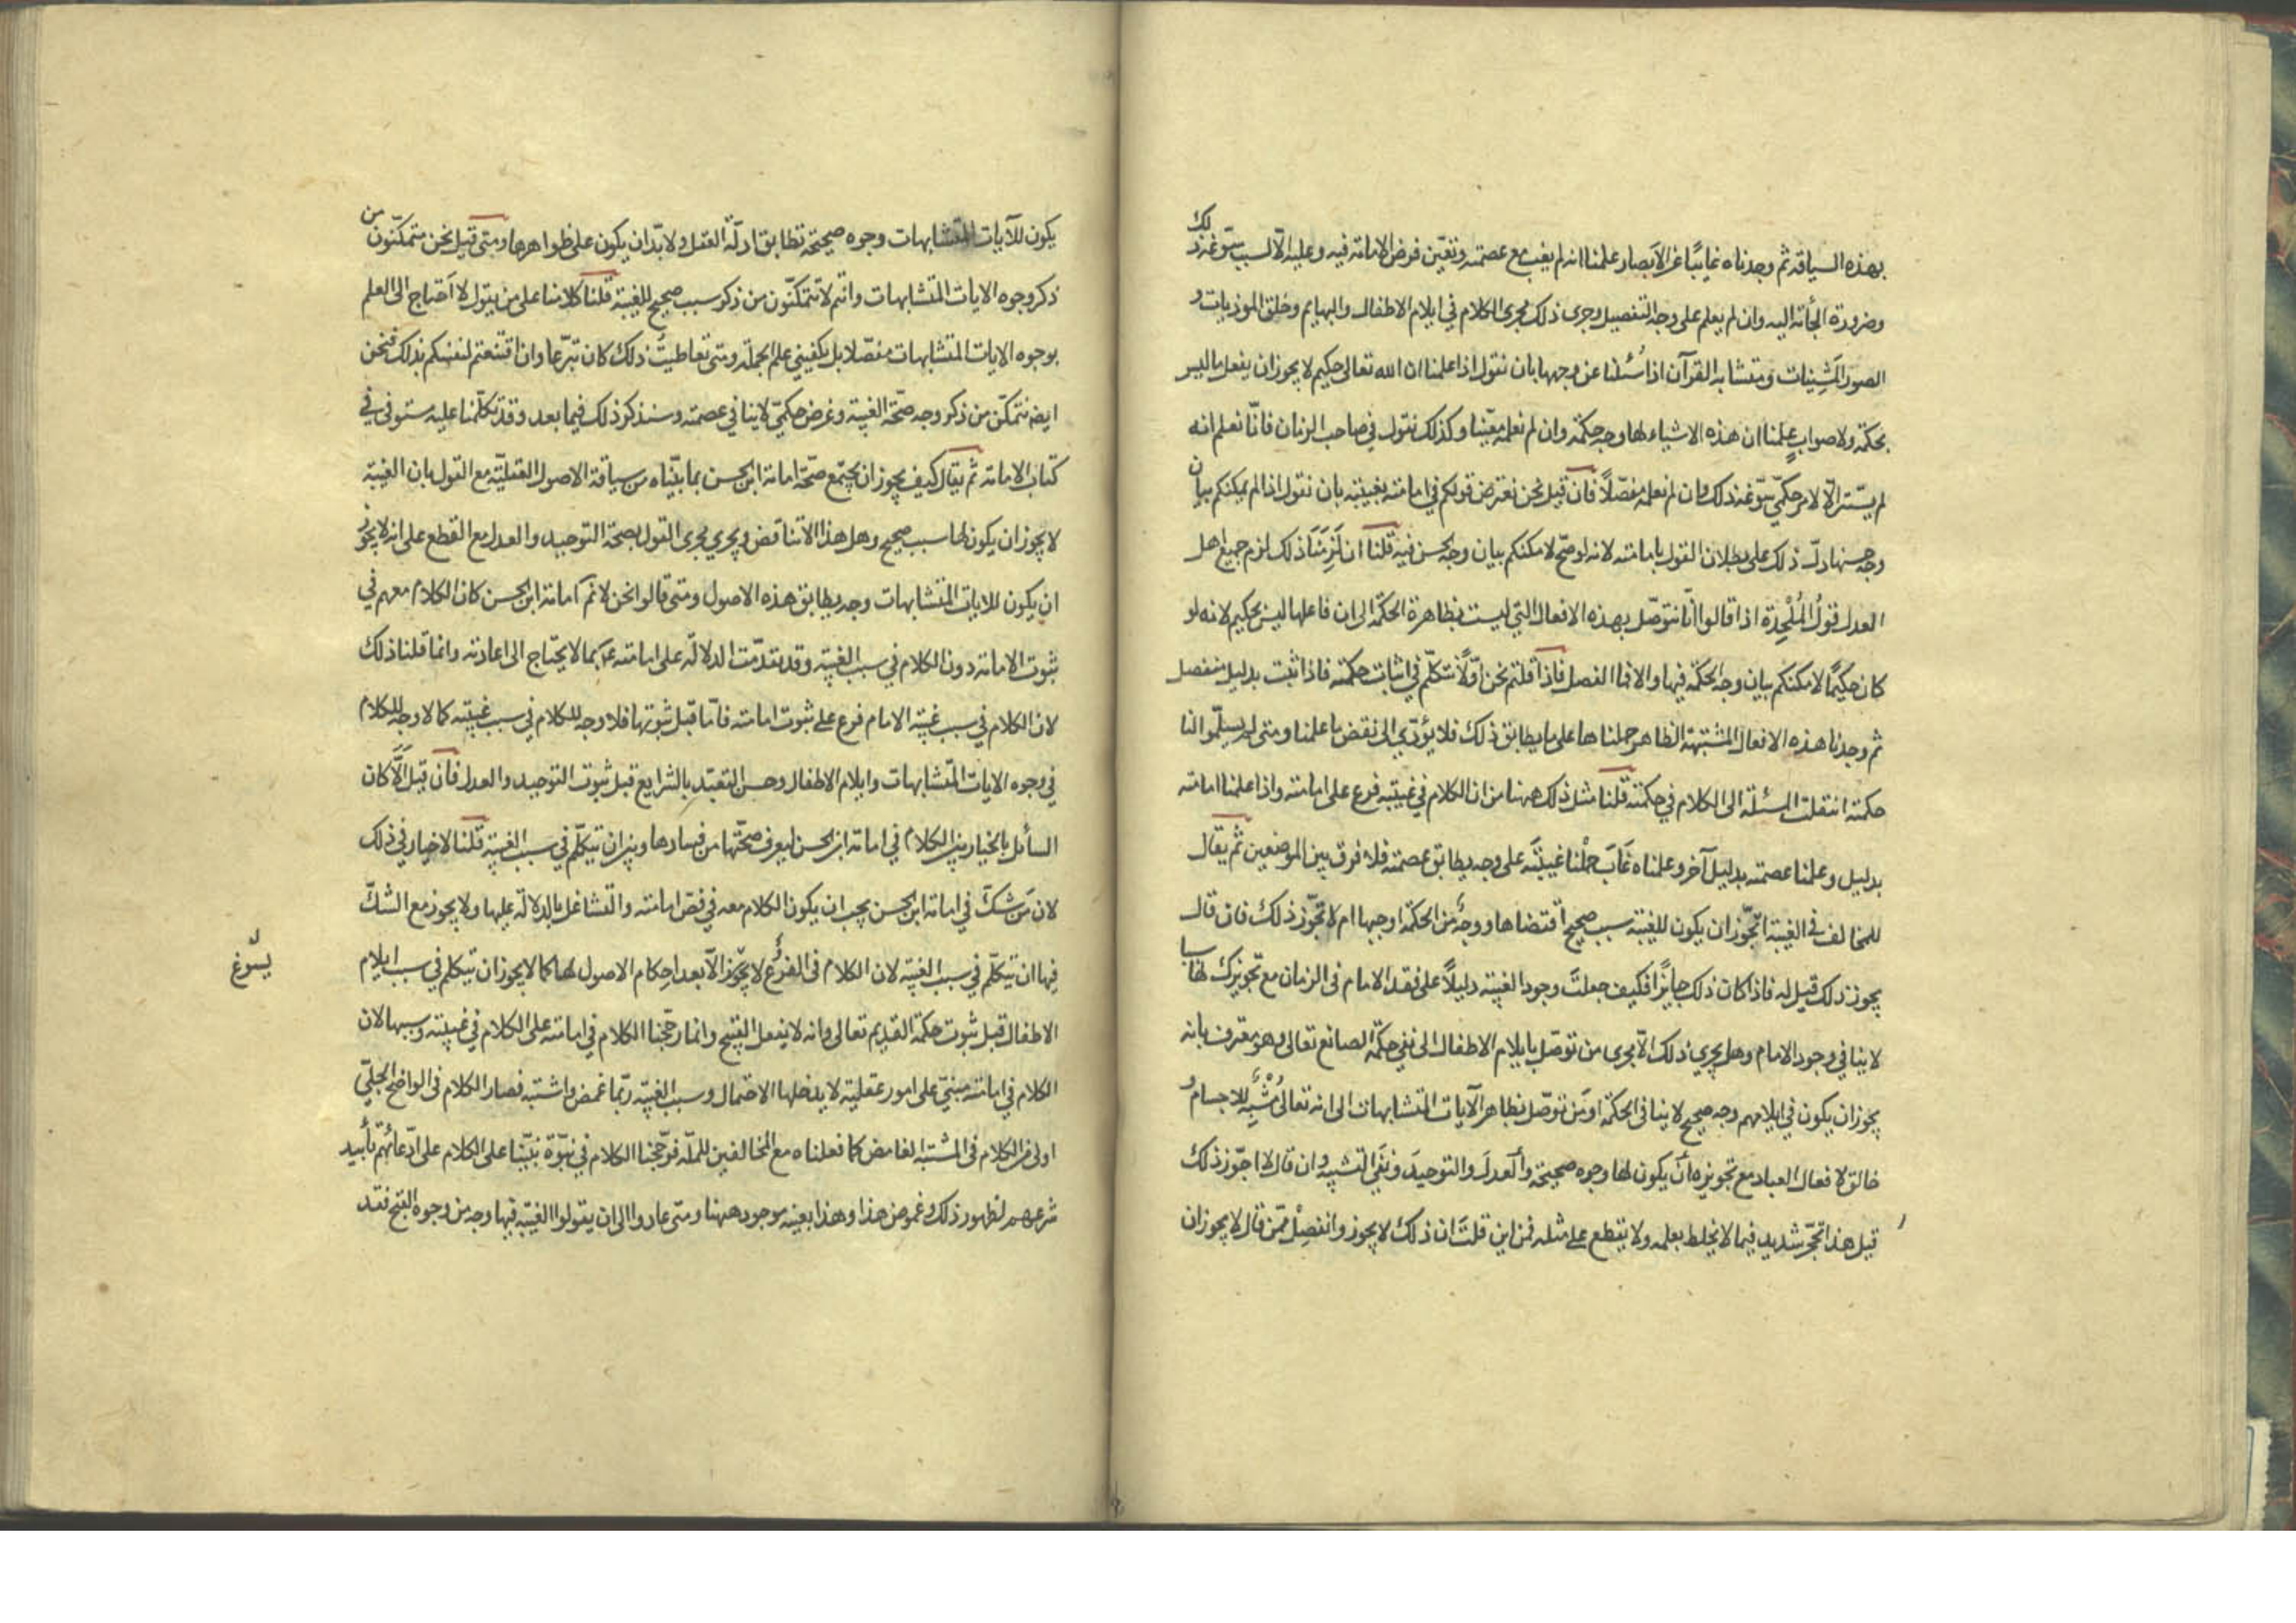 بهذه السياقة ثم وجدناه غايبًا عن الابصار علمنا انه لم يغب مع عصمته وتعيّن فرض الامامة فيه وعليه الّا لسبب سوّغه ذلك
وضرورة الجأته اليه وان لم يعلم على وجه التفصيل وجرى ذلك مجرى الكلام في ايلام الاطفال والبهايم وخلق الموذيات و
الصور المَشِينات ومتشابه القرآن اذا سُئلنا عن وجهها بان نقول اذا علمنا ان الله تعالى حكيم لا يجوز ان يفعل ما ليس
بحكمة ولا صواب علمنا ان هذه الاشياء لها وجه حكمة وان لم نعلمه معيّنا وكذلك نقول في صاحب الزمان فانّا نعلم انه
لم يستتر الّا لامر حكمّي سوّغه ذلك وان لم نعلمه مفصّلاً فان قيل نحن نعترض قولكم في امامته بغيبته بان نقول اذا لم يمكنكم بيان
وجه حسنها دلّ ذلك على بطلان القول بامامته لانه لو صحّ لامكنكم بيان وجه الحسن فيه قلنا ان لَزِمَنَا ذلك لزم جميع اهل
العدل قولُ المُلْحِدة اذا قالوا انّا نتوصّل بهذه الافعال التي ليست بظاهرة الحكمة الى ان فاعلها ليس بحكيم لانه لو
كان حكيمًا لامكنكم بيان وجه الحكمة فيها والا فما الفصل فاذا قلتم نحن اوّلاً نتكلّم في اثبات حكمته فاذا ثبت بدليل منفصل
ثم وجدنا هذه الافعال المشتبهة الظاهر حملناها على ما يطابق ذلك فلا يؤدّي الى نقض ما علمنا ومتى لم يسلّموا لنا
حكمته انتقلت المسئلة الى الكلام في حكمته قلنا مثل ذلك ههنا من ان الكلام في غيبته فرع على امامته واذا علمنا امامته
بدليل وعلمنا عصمته بدليل آخر وعلمناه غَابَ حملْنا غيبتَه على وجه يطابق عصمته فلا فرق بين الموضعين ثم يقال
للمخالف في الغيبة اتجّوز ان يكون للغيبة سبب صحيح اقتضاها ووجهٌ من الحكمة اوجبها ام لا تجّوز ذلك فان قال
يجوز ذلك قيل له فاذا كان ذلك جايزًا فكيف جعلتَ وجود الغيبة دليلاً على فقد الامام في الزمان مع تجويزك لها سببا
لا ينافي وجود الامام وهل يجري ذلك الّا مجرى من توصّل بايلام الاطفال الى نفي حكمة الصانع تعالى وهو معترف بانه
يجوز ان يكون في ايلامهم وجه صحيح لا ينافي الحكمة او مَن توصّل بظاهر الآيات المتشابهات الى انه تعالى مُشْبِهٌ للاجسام و
خالق لافعال العباد مع تجويزه أنْ يكون لها وجوه صحيحة وأ لعدلَ والتوحيدَ ونفَي التشبيه وان قال لا اجوّز ذلك
قيل هذا تحجّر شديد فيما لا يحاط بعلمه ولا يقطع على مثله فمن اين قلتَ ان ذلك لا يجوز وانفصِلْ ممّن قال لا يجوز ان
يكون للآيات المتشابهات وجوه صحيحة تطابق ادلّة العقل ولا بدّ ان يكون على ظواهرها ومتى قيل نحن متمكّنون من
ذكر وجوه الايات المتشابهات وانتم لا تتمكّنون من ذكر سبب صحيح للغيبة قلنا كلامنا على من يقول لا احتاج الى العلم
بوجوه الايات المتشابهات مفصّلا بل يكفيني علم الجملة ومتى تعاطيتُ ذلك كان تبرّعا وان اقتنعتم لنفسكم بذلك فنحن
ايضا نتمكّن من ذكر وجه صحّة الغيبة وغرض حكميّ لا ينافي عصمته وسنذكر ذلك فيما بعد وقد تكلّمنا عليه مستوفى في
كتاب الامامة ثم يقال كيف يجوز ان يجتمع صحّة امامة ابن الحسن بما بيّناه من سياقة الاصول العقليّة مع القول بان الغيبة
لا يجوز ان يكون لها سبب صحيح وهل هذا الا تناقض ويجري مجرى القول بصحة التوحيد والعدل مع القطع على انه لا يجوز
ان يكون للايات المتشابهات وجه يطابق هذه الاصول ومتى قالوا نحن لا نم امامة ابن الحسن كان الكلام معهم في
ثبوت الامامة دون الكلام في سبب الغيبة وقد تقدّمت الدلالة على امامته ع بما لا يحتاج الى اعادته وانما قلنا ذلك
لان الكلام في سبب غيبة الامام فرع على ثبوت امامته فامّا قبل ثبوتها فلا وجه للكلام في سبب غيبته كما لا وجه للكلام
في وجوه الايات المتشابهات وايلام الاطفال وحسن التعبّد بالشرايع قبل ثبوت التوحيد والعدل فان قيل الّا كان
السائل بالخيار بين الكلام في امامة ابن الحسن ليعرف صحّتها من فسادها وبين ان يتكلّم في سبب الغيبة قلنا لا خيار في ذلك
لان مَن شكّ في امامة ابن الحسن يجب ان يكون الكلام معه في نصّ امامته والتشاغل بالدلالة عليها ولا يجوز مع الشكّ
فيها ان يتكلّم في سبب الغيبة لان الكلام في الفروع لا يجوز الّا بعد احكام الاصول لها كما لا يجوز ان يتكلم في سبب ايلام
يسُوغ
الاطفال قبل ثبوت حكمة القديم تعالى وانه لا يفعل القبيح وانما رجّحنا الكلام في امامته على الكلام في غيبته وسببها لان
الكلام في امامته مبنيّ على امور عقلية لا يدخلها الاحتمال وسبب الغيبة ربّما غمض واشتبه فصار الكلام في الواضح الجليّ
اولى من الكلام في المشتبه الغامض كما فعلناه مع المخالفين للملّة فرجّحنا الكلام في نبوّة نبيّنا على الكلام على ادّعائهم تأبيد
شرعهم لظهور ذلك وغموض هذا وهذا بعينه موجود ههنا ومتى عادوا الى ان يقولوا الغيبة فيها وجه من وجوه القبح فقد